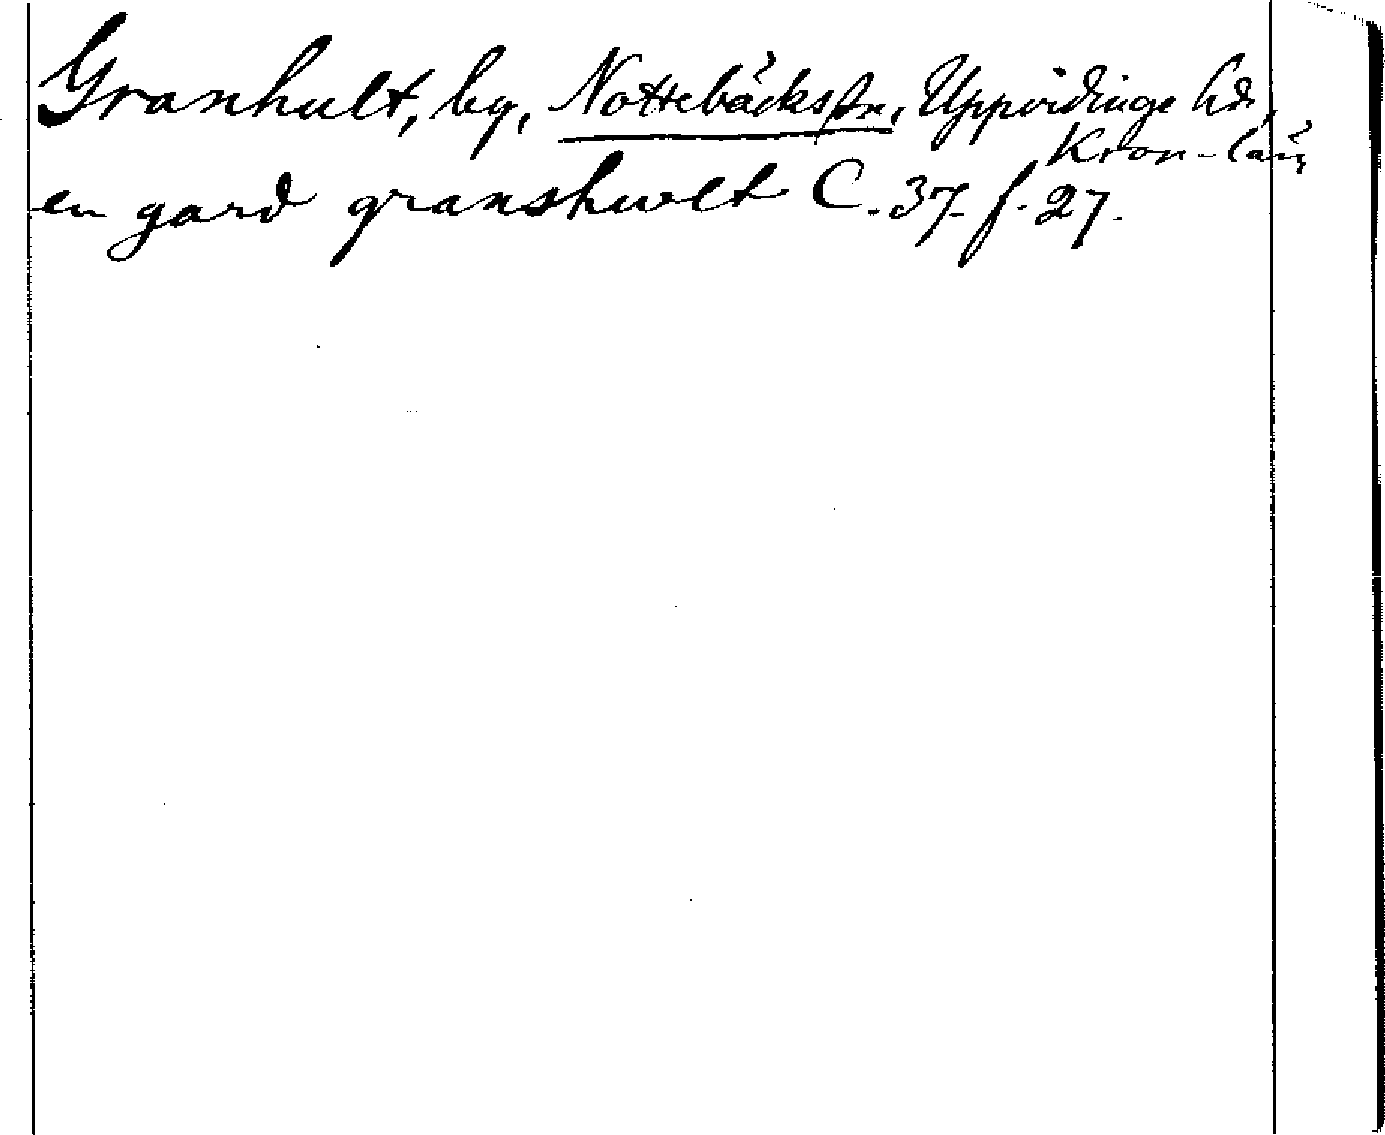 Granhult, by, Nottebäcks sn, Uppvidinge hd,
Kron-län
en gard granshwlt C. 37. f. 27.